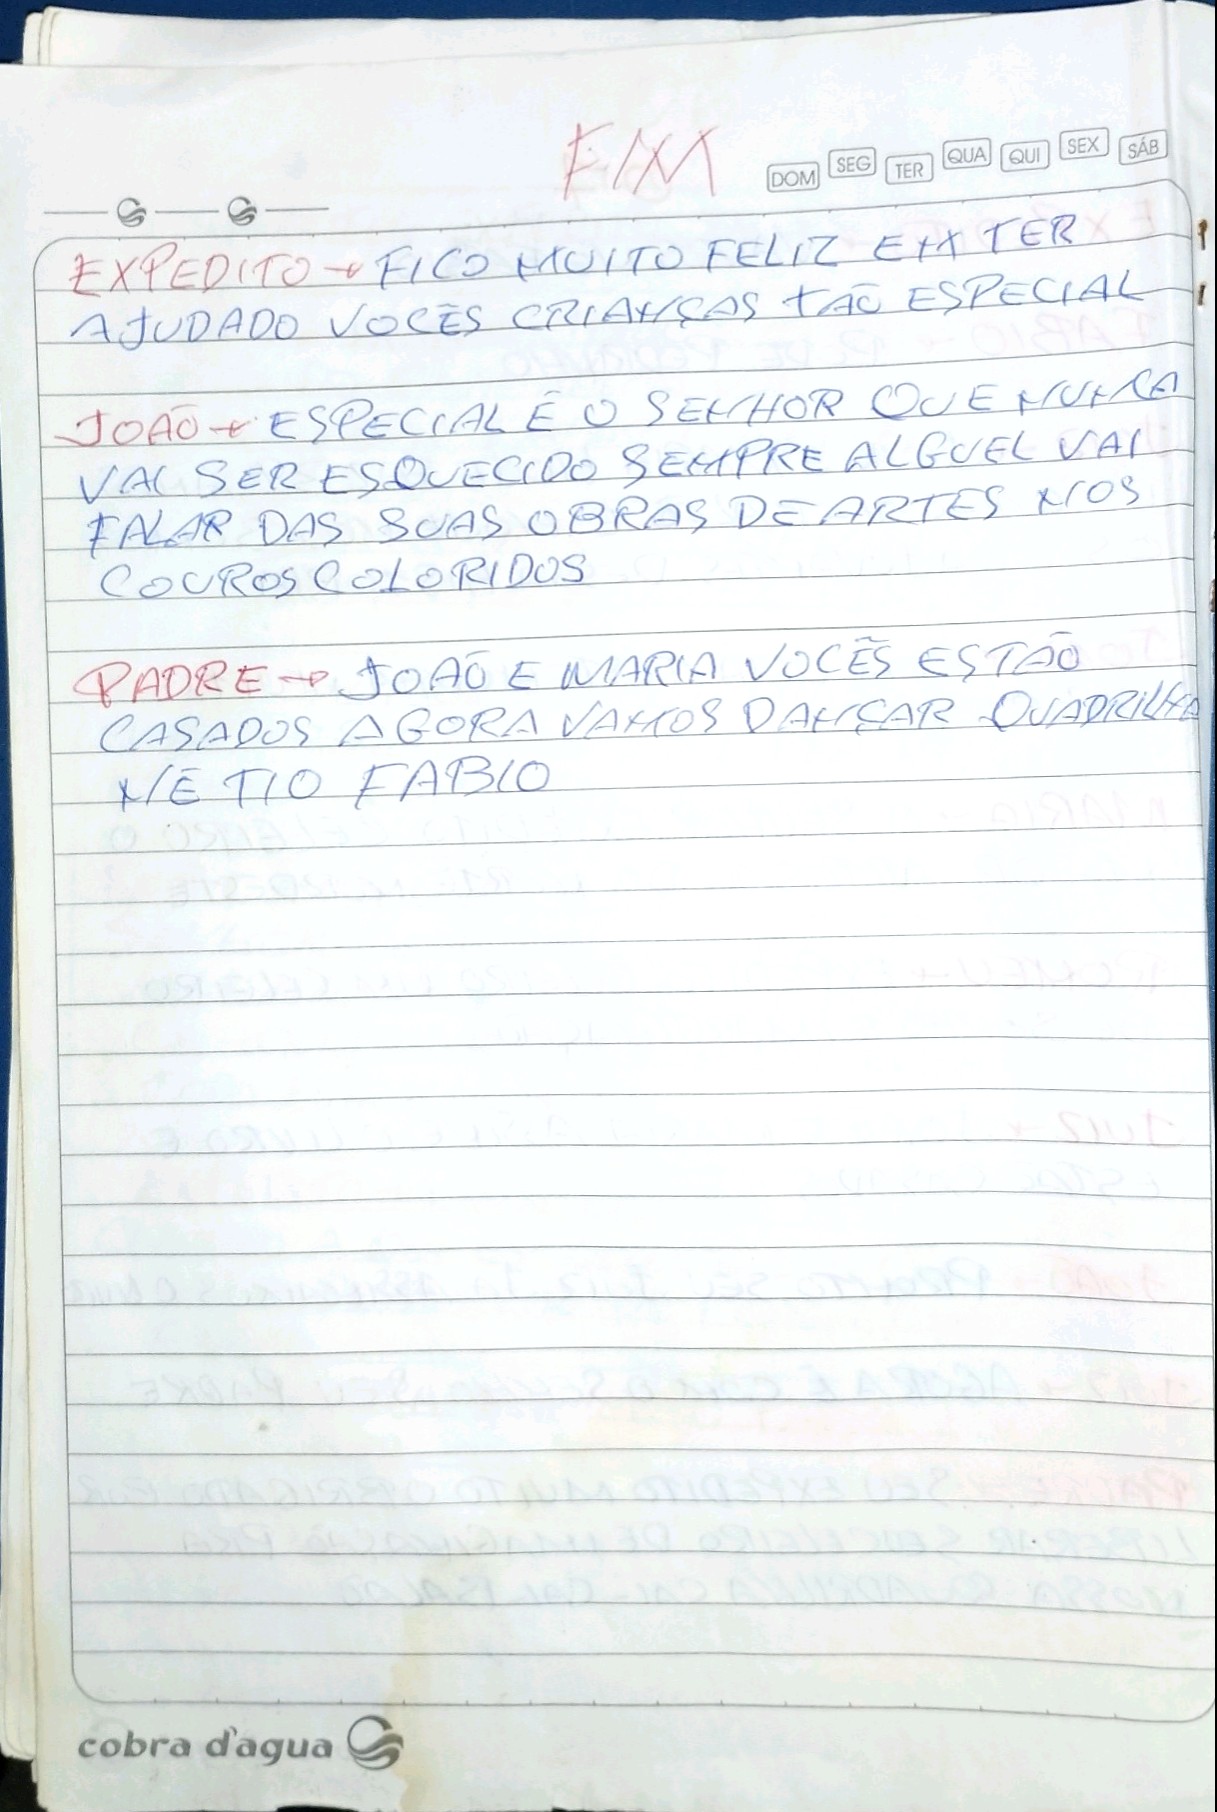 FIM
DOM SEG TER QUA QUI SEX SÁB
EXPEDITO → FICO MUITO FELIZ EM TER
AJUDADO VOCÊS CRIANÇAS TÃO ESPECIAL
JOÃO → ESPECIAL É O SENHOR QUE NUNCA
VAI SER ESQUECIDO SEMPRE ALGUEL VAI
FALAR DAS SUAS OBRAS DE ARTES NOS
COUROS COLORIDOS
PADRE → JOÃO E MARIA VOCÊS ESTÃO
CASADOS AGORA VAMOS DANÇAR QUADRILHA
NÉ TIO FABIO
cobra d'agua